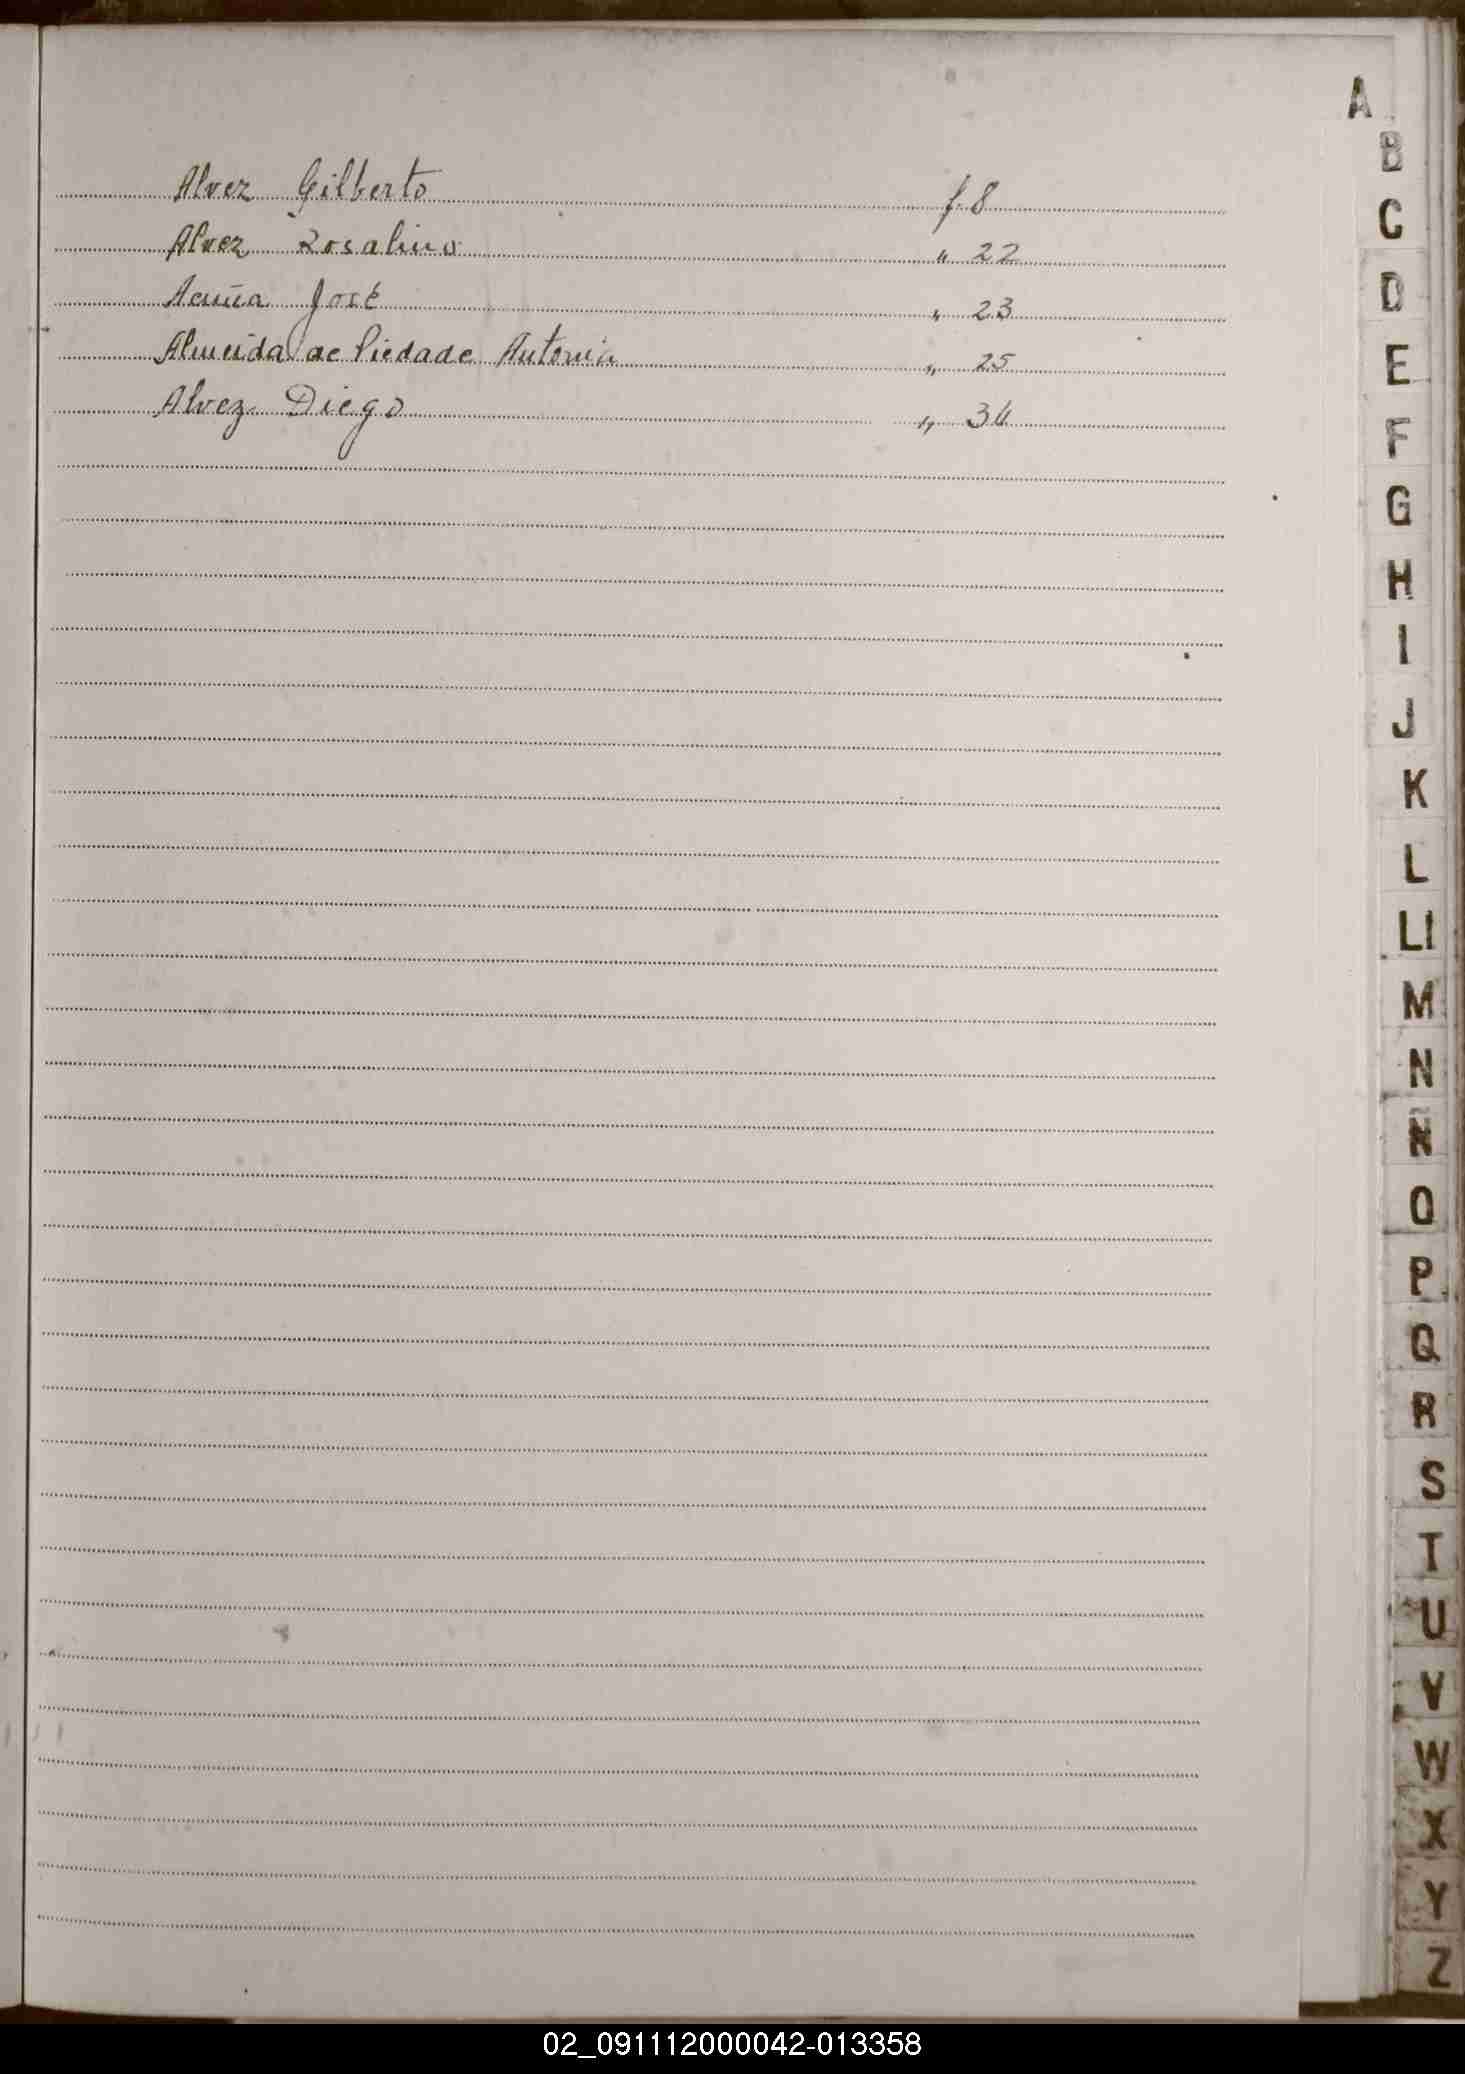 A
B
Alvez Gilberto f. 8
C
Alvez Rosalino " 22
Acuña José " 23
D
Almeida de Piedade Antonia " 25
E
Alvez Diego " 34
F
G
H
I
J
K
L
Ll
M
N
Ñ
O
P
Q
R
S
T
U
V
W
X
Y
Z
02_091112000042-013358